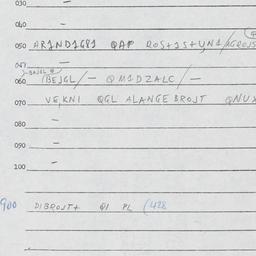 030 —
040 —
050 AR1ND1G81 QAF ROS+1S+UN1/AGROJS
047
060 (BEJGL/— QM1DZALC/—
070 VE,KNI QGL ALANGE BROJT QNUX
080 —
090 —
100 —
900 DIBROJT+ QI PL (428